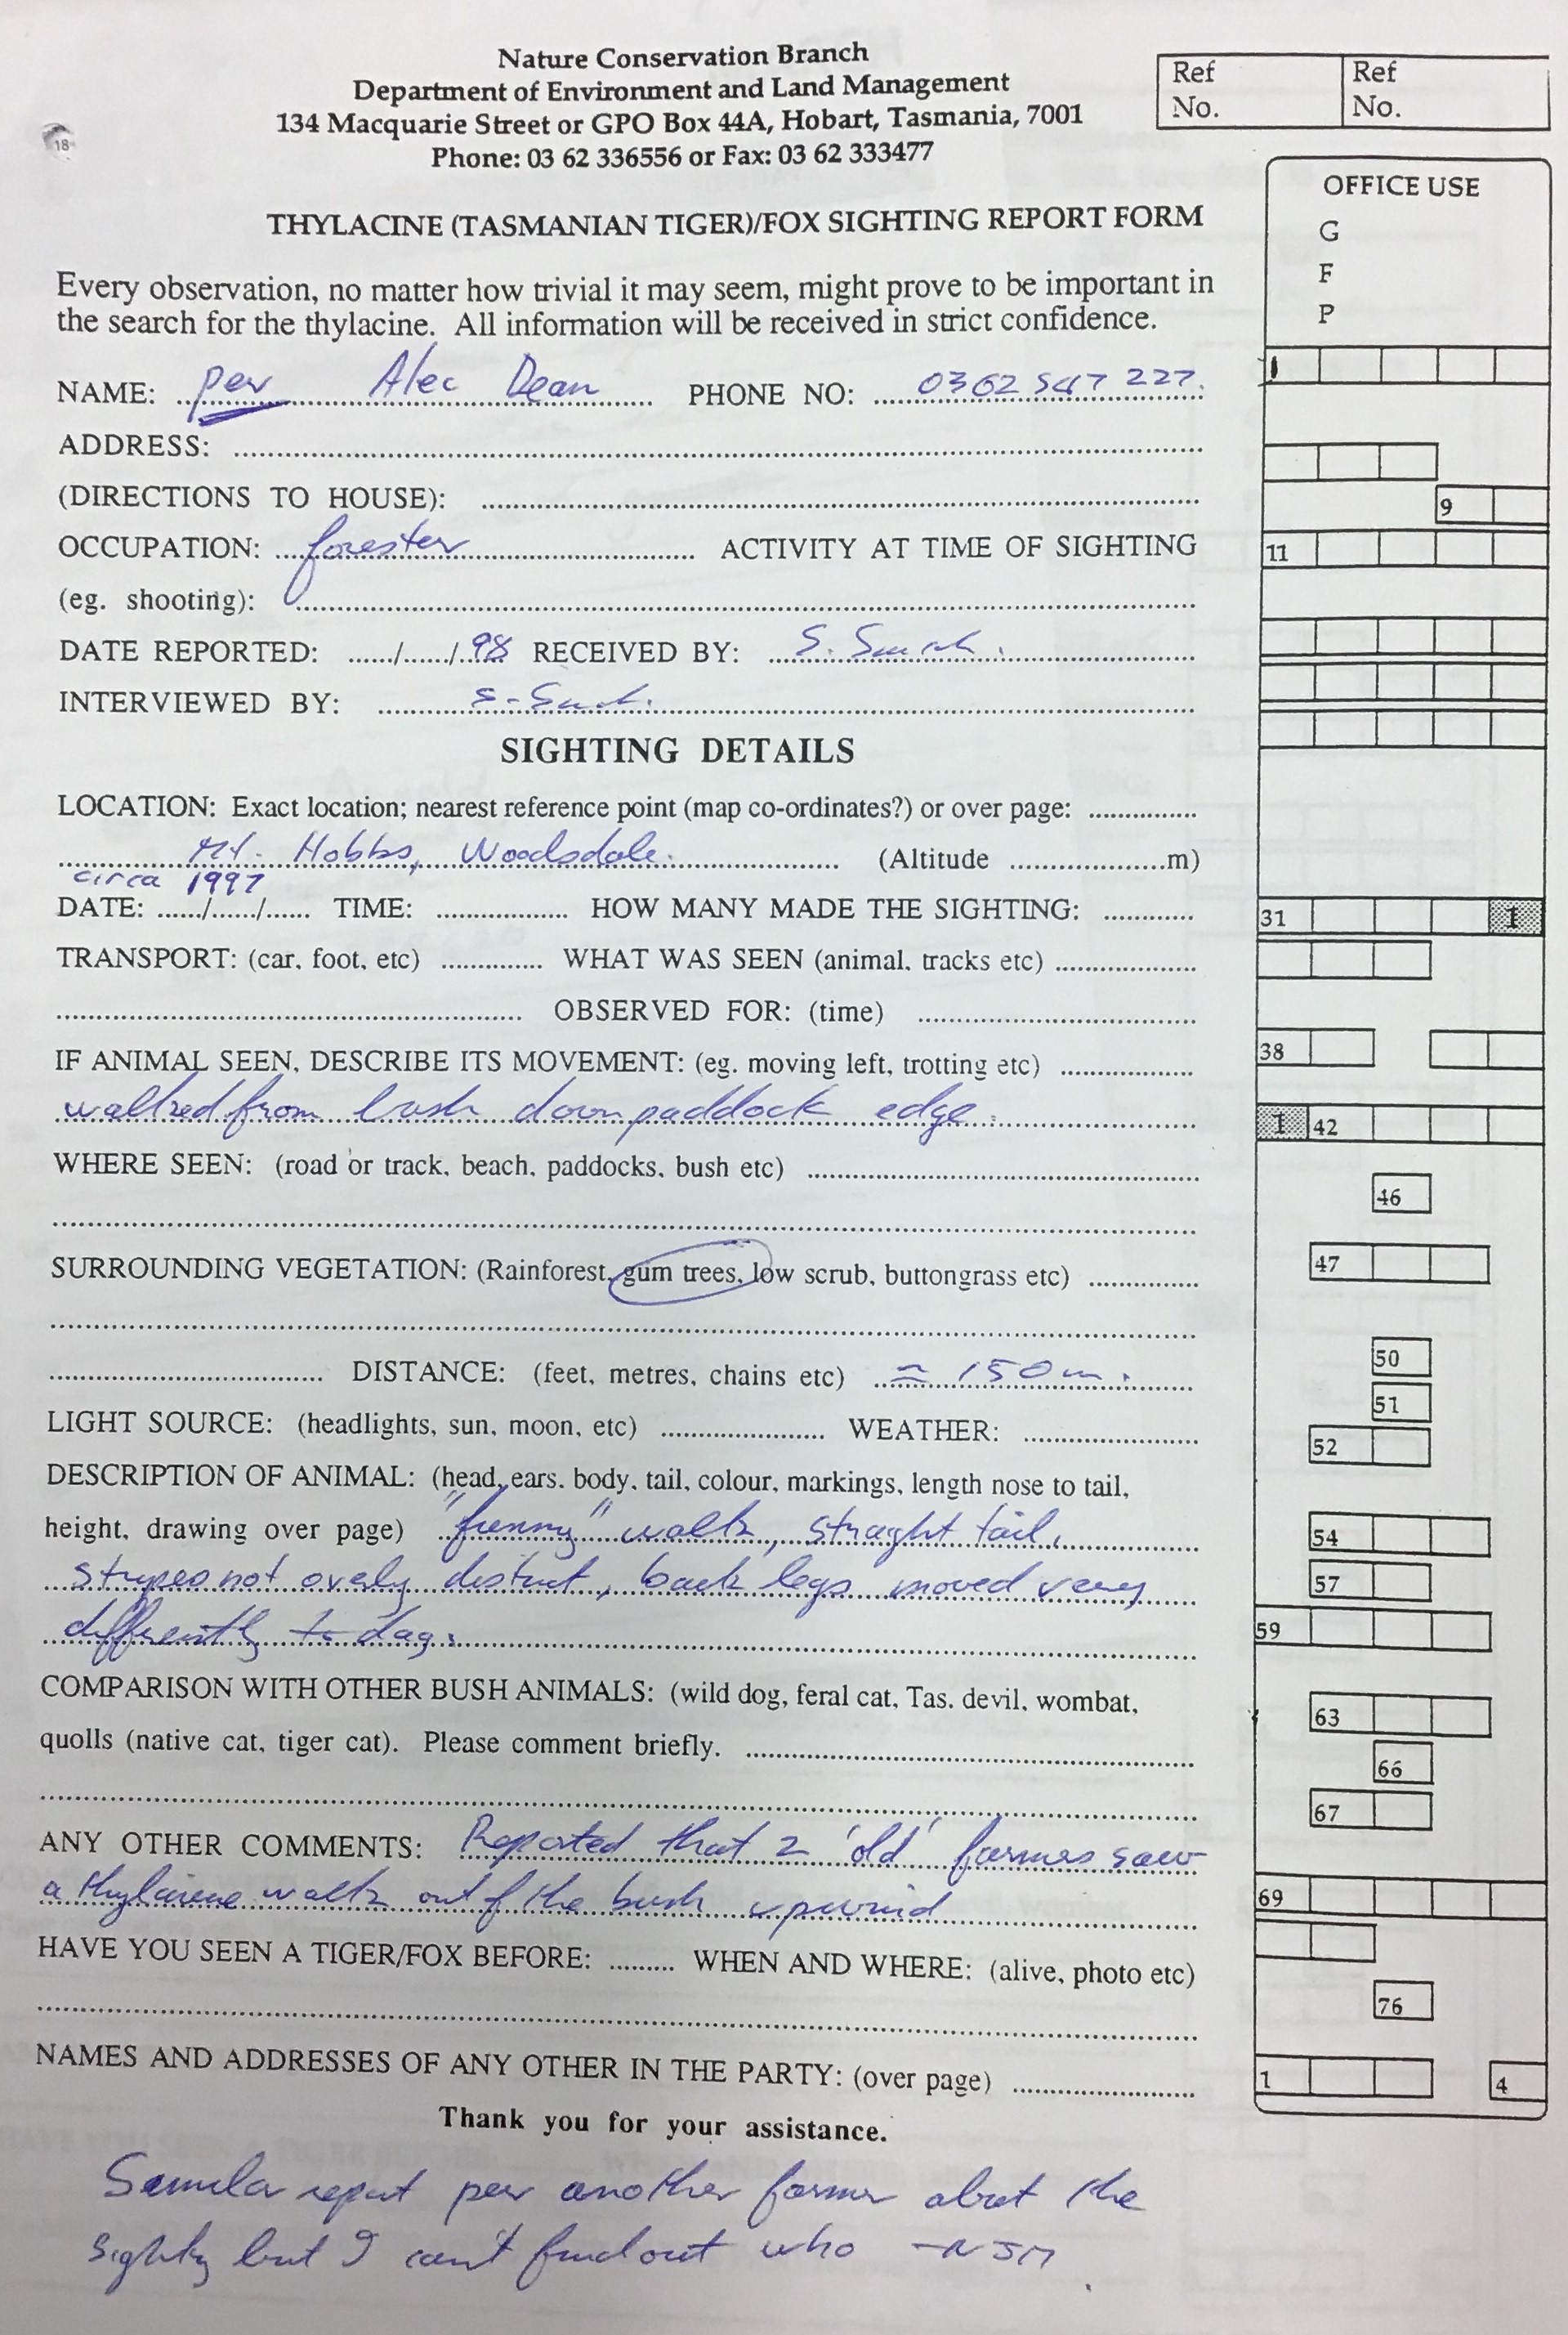 Nature Conservation Branch
Department of Environment and Land Management
134 Macquarie Street or GPO Box 44A, Hobart, Tasmania, 7001
Phone: 03 62 336556 or Fax: 03 62 333477
Ref No. Ref No.
18
OFFICE USE
G
F
P
THYLACINE (TASMANIAN TIGER)/FOX SIGHTING REPORT FORM
Every observation, no matter how trivial it may seem, might prove to be important in
the search for the thylacine. All information will be received in strict confidence.
NAME: per Alec Dean PHONE NO: 0362 547 227. 1
ADDRESS:
(DIRECTIONS TO HOUSE): 9
OCCUPATION: forester ACTIVITY AT TIME OF SIGHTING 11
(eg. shooting):
DATE REPORTED: ....../....../..98 RECEIVED BY: S.
INTERVIEWED BY:
SIGHTING DETAILS
LOCATION: Exact location; nearest reference point (map co-ordinates?) or over page:
Mt. Hobbs, Woodsdale. (Altitude ..............m)
circa 1997
DATE: ....../....../...... TIME: HOW MANY MADE THE SIGHTING: 31 1
TRANSPORT: (car, foot, etc) WHAT WAS SEEN (animal, tracks etc)
OBSERVED FOR: (time)
IF ANIMAL SEEN, DESCRIBE ITS MOVEMENT: (eg. moving left, trotting etc) 38
walked from bush down paddock edge. 1 42
WHERE SEEN: (road or track, beach, paddocks, bush etc) 46
SURROUNDING VEGETATION: (Rainforest, gum trees, low scrub, buttongrass etc) 47
DISTANCE: (feet, metres, chains etc) ≈ 150m. 50
51
LIGHT SOURCE: (headlights, sun, moon, etc) WEATHER: 52
DESCRIPTION OF ANIMAL: (head, ears, body, tail, colour, markings, length nose to tail,
height, drawing over page) "funny" walk, straight tail, 54
stripes not overly distinct, back legs moved very 57
differently to dog. 59
COMPARISON WITH OTHER BUSH ANIMALS: (wild dog, feral cat, Tas. devil, wombat, 63
quolls (native cat, tiger cat). Please comment briefly. 66
67
ANY OTHER COMMENTS: Reported that 2 'old' farmers saw
a thylacine walk out of the bush upwind 69
HAVE YOU SEEN A TIGER/FOX BEFORE: WHEN AND WHERE: (alive, photo etc)
76
NAMES AND ADDRESSES OF ANY OTHER IN THE PARTY: (over page) 1 4
Thank you for your assistance.
Similar report per another farmer about the
sighting but I can't find out who